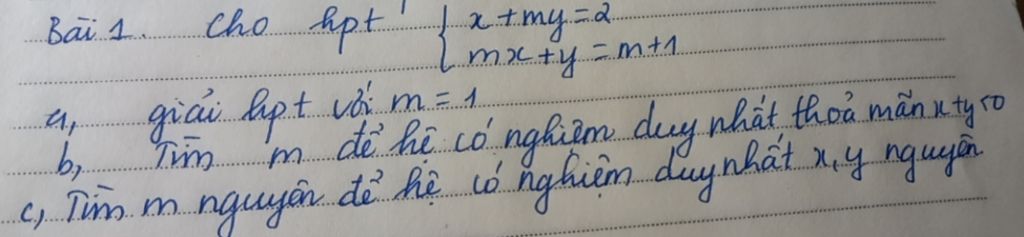 Bài 1. Cho hpt { x + my = 2
mx + y = m + 1
a, giải hpt với m = 1
b, Tìm m để hệ có nghiệm duy nhất thoả mãn x + y < 0
c, Tìm m nguyên để hệ có nghiệm duy nhất x, y nguyên